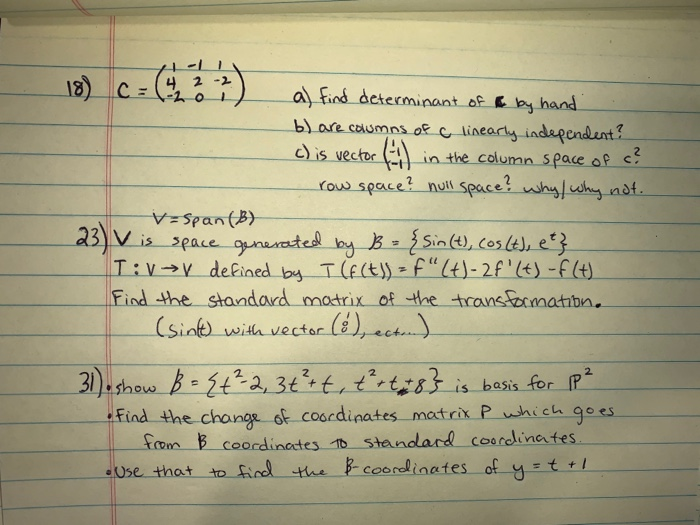 1 -1 1
18) C = ( 4 2 -2 )
-2 0 1
a) find determinant of C by hand
b) are columns of C linearly independent?
c) is vector (1 -1 -1) in the column space of C?
row space? null space? why/why not.
V = Span(B)
23) V is space generated by B = {sin(t), cos(t), e^t}
T: V → V defined by T(f(t)) = f"(t) - 2f'(t) - f(t)
Find the standard matrix of the transformation.
(sin(t) with vector (1 0 0), ect...)
31) • show B = {t²-2, 3t²+t, t²+t+8} is basis for P²
• Find the change of coordinates matrix P which goes
from B coordinates to standard coordinates.
• Use that to find the B-coordinates of y = t + 1